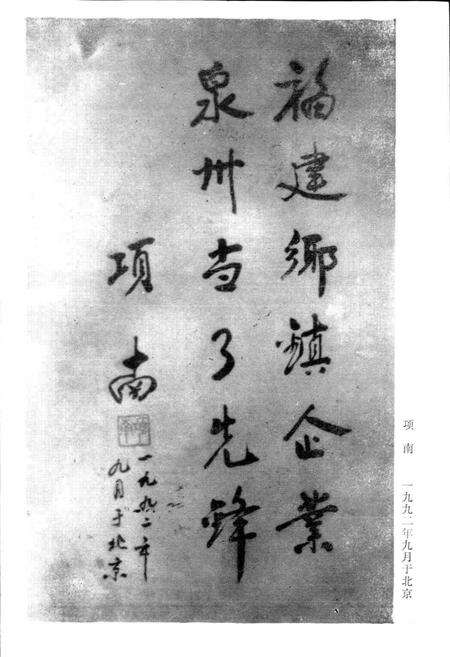 福建鄉鎮企業
泉州当了先鋒
项南
一九九二年
九月于北京
项南 一九九二年九月于北京